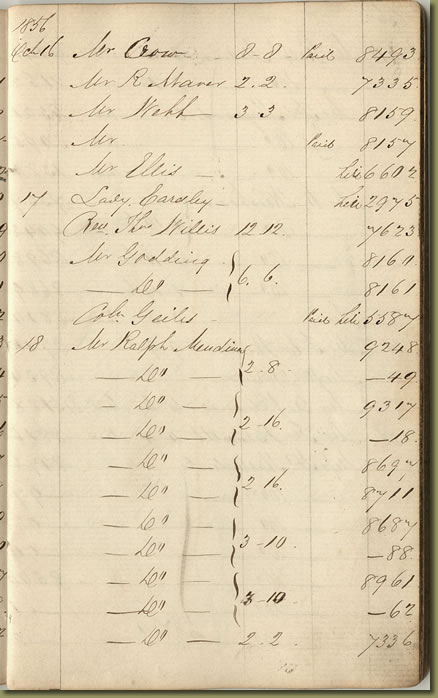 1856
Oct 16 Mr Crow 8-8 Paid 8493
Mr R Maver 2.2 7335
Mr Webb 3 3 8159
Mr Paid 8157
Mr Ellis 6602
17 Lady Eardley 2975
Revd Thos Willis 12.12. 7623
Mr Godding 8160
— Do — 6.6. 8161
Coln Geils Paid 5587
18 Mr Ralph 9248
— Do — 2-8 —49
— Do — 9317
— Do — 2-16 —18
— Do — 8697
— Do — 2-16. 8711
— Do — 8687
— Do — 3-10 —88
— Do — 8961
— Do — 3-10 —62
— Do — 2-2 7336